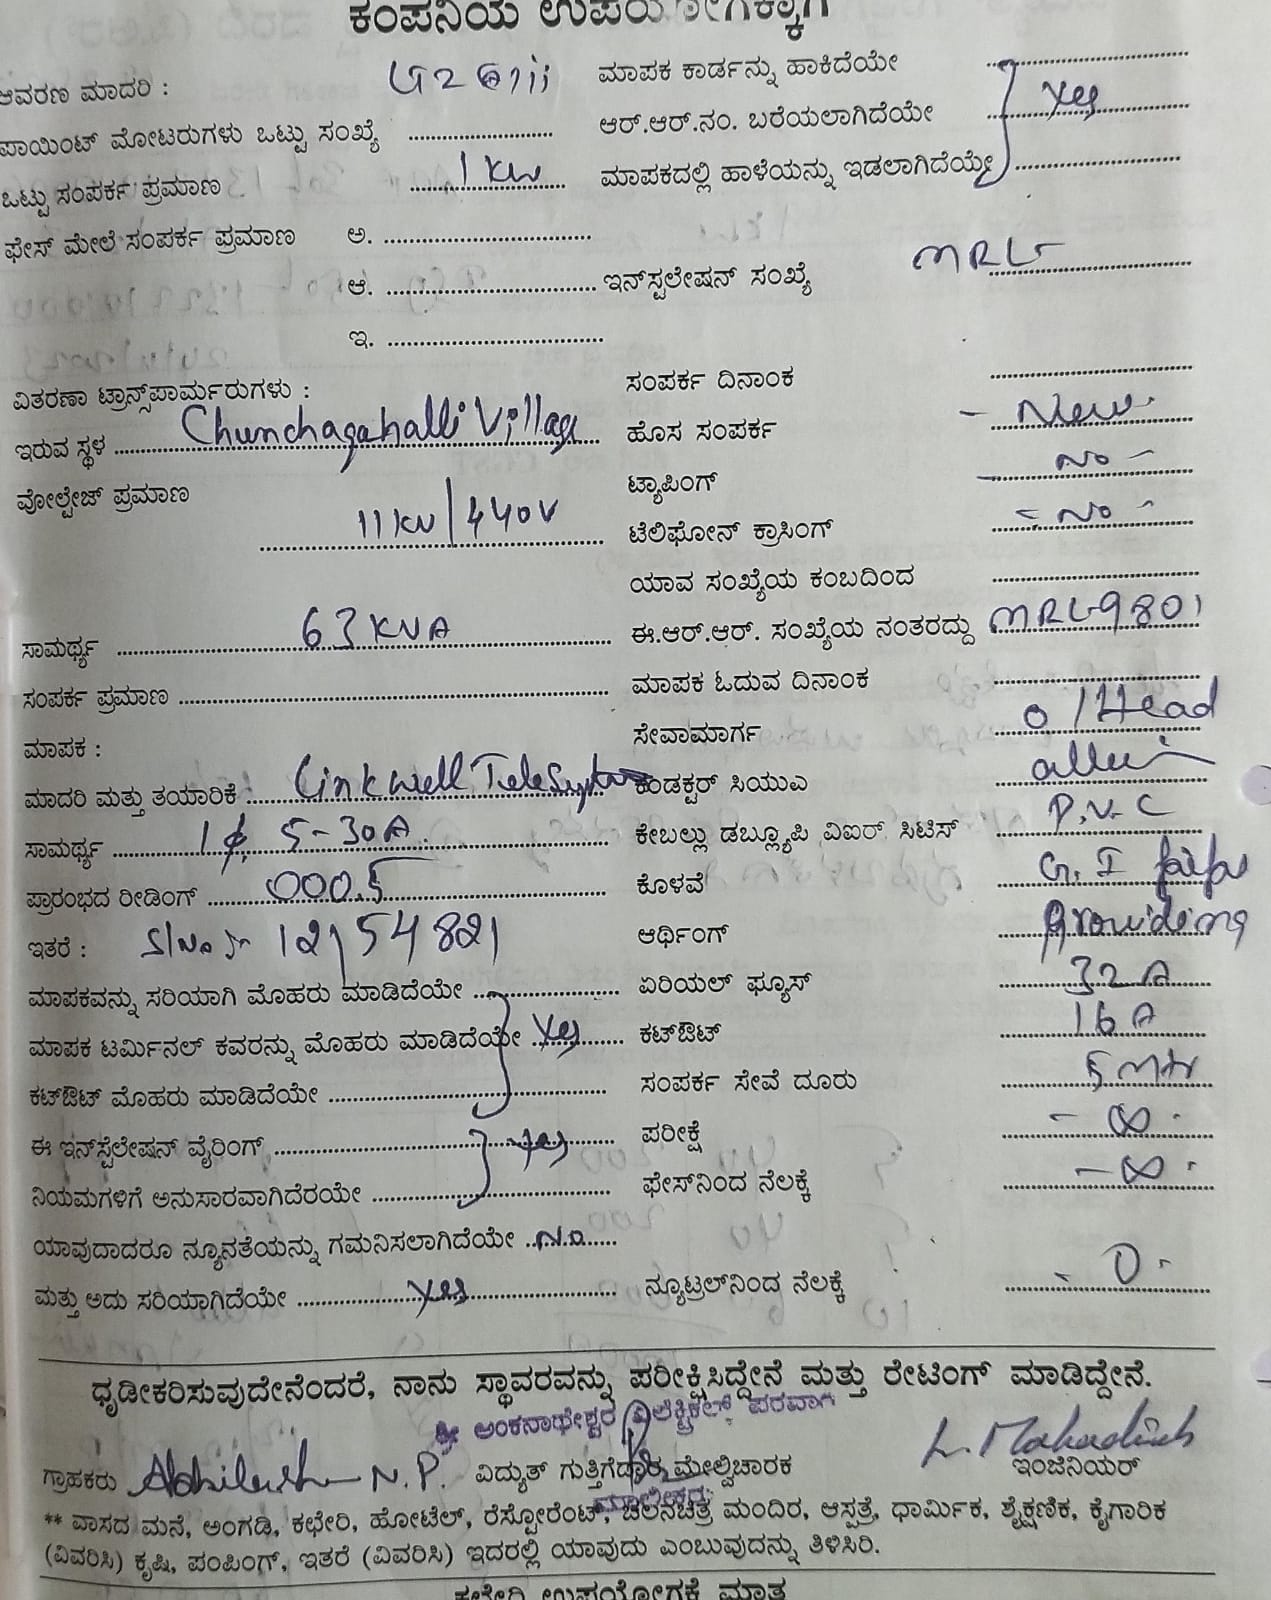 ಕಂಪನಿಯ ಉಪಯೋಗಕ್ಕಾಗಿ
ಆವರಣ ಮಾದರಿ : ಮಾಪಕ ಕಾರ್ಡನ್ನು ಹಾಕಿದೆಯೇ
ಪಾಯಿಂಟ್ ಮೋಟರುಗಳು ಒಟ್ಟು ಸಂಖ್ಯೆ ........ ಆರ್.ಆರ್.ನಂ. ಬರೆಯಲಾಗಿದೆಯೇ Yes
ಒಟ್ಟು ಸಂಪರ್ಕ ಪ್ರಮಾಣ 1 KW ಮಾಪಕದಲ್ಲಿ ಹಾಳೆಯನ್ನು ಇಡಲಾಗಿದೆಯೇ
ಫೇಸ್ ಮೇಲೆ ಸಂಪರ್ಕ ಪ್ರಮಾಣ ಅ. ........
ಆ. ........ ಇನ್‌ಸ್ಟಲೇಷನ್ ಸಂಖ್ಯೆ MRLG
ಇ. ........
ವಿತರಣಾ ಟ್ರಾನ್ಸ್‌ಪಾರ್ಮರುಗಳು : ಸಂಪರ್ಕ ದಿನಾಂಕ ........
ಇರುವ ಸ್ಥಳ Chunchagahalli Village ಹೊಸ ಸಂಪರ್ಕ - New -
ವೋಲ್ಟೇಜ್ ಪ್ರಮಾಣ 11 KV / 440 V ಟ್ಯಾಪಿಂಗ್ - No -
ಟೆಲಿಫೋನ್ ಕ್ರಾಸಿಂಗ್ - No -
ಯಾವ ಸಂಖ್ಯೆಯ ಕಂಬದಿಂದ ........
ಸಾಮರ್ಥ್ಯ 63 KVA ಈ.ಆರ್.ಆರ್. ಸಂಖ್ಯೆಯ ನಂತರದ್ದು MRLG9801
ಸಂಪರ್ಕ ಪ್ರಮಾಣ ........ ಮಾಪಕ ಓದುವ ದಿನಾಂಕ ........
ಮಾಪಕ : ಸೇವಾಮಾರ್ಗ O/Head
ಮಾದರಿ ಮತ್ತು ತಯಾರಿಕೆ Linkwell TeleSystem ಕಂಡಕ್ಟರ್ ಸಿಯುಎ
ಸಾಮರ್ಥ್ಯ 1ϕ, 5-30A ಕೇಬಲ್ಲು ಡಬ್ಲ್ಯೂಪಿ ವಿಐರ್ ಸಿಟಿಸ್ P.V.C
ಪ್ರಾರಂಭದ ರೀಡಿಂಗ್ 000.5 ಕೊಳವೆ G.I pipe
ಇತರೆ : S/No :- 12154821 ಆರ್ಥಿಂಗ್ Providing
ಮಾಪಕವನ್ನು ಸರಿಯಾಗಿ ಮೊಹರು ಮಾಡಿದೆಯೇ ........ ಏರಿಯಲ್ ಫ್ಯೂಸ್ 32 A
ಮಾಪಕ ಟರ್ಮಿನಲ್ ಕವರನ್ನು ಮೊಹರು ಮಾಡಿದೆಯೇ Yes ಕಟ್‌ಔಟ್ 16 A
ಕಟ್‌ಔಟ್ ಮೊಹರು ಮಾಡಿದೆಯೇ ........ ಸಂಪರ್ಕ ಸೇವೆ ದೂರು 5 mtr
ಈ ಇನ್‌ಸ್ಟೆಲೇಷನ್ ವೈರಿಂಗ್ Yes ಪರೀಕ್ಷೆ - ∞ -
ನಿಯಮಗಳಿಗೆ ಅನುಸಾರವಾಗಿದೆರಯೇ ........ ಫೇಸ್‌ನಿಂದ ನೆಲಕ್ಕೆ - ∞ -
ಯಾವುದಾದರೂ ನ್ಯೂನತೆಯನ್ನು ಗಮನಿಸಲಾಗಿದೆಯೇ No
ಮತ್ತು ಅದು ಸರಿಯಾಗಿದೆಯೇ Yes ನ್ಯೂಟ್ರಲ್‌ನಿಂದ ನೆಲಕ್ಕೆ - 0 -
ಧೃಡೀಕರಿಸುವುದೇನೆಂದರೆ, ನಾನು ಸ್ಥಾವರವನ್ನು ಪರೀಕ್ಷಿಸಿದ್ದೇನೆ ಮತ್ತು ರೇಟಿಂಗ್ ಮಾಡಿದ್ದೇನೆ.
ಶ್ರೀ ಅಂಕನಾಥೇಶ್ವರ ಎಲೆಕ್ಟ್ರಿಕಲ್ಸ್ ಪರವಾಗಿ
ಗ್ರಾಹಕರು Abhilash N.P. ವಿದ್ಯುತ್ ಗುತ್ತಿಗೆದಾರ ಮೇಲ್ವಿಚಾರಕ ಇಂಜಿನಿಯರ್
ಮಾಲೀಕರು
** ವಾಸದ ಮನೆ, ಅಂಗಡಿ, ಕಛೇರಿ, ಹೋಟೆಲ್, ರೆಸ್ಟೋರೆಂಟ್, ಚಲನಚಿತ್ರ ಮಂದಿರ, ಆಸ್ಪತ್ರೆ, ಧಾರ್ಮಿಕ, ಶೈಕ್ಷಣಿಕ, ಕೈಗಾರಿಕ
(ವಿವರಿಸಿ) ಕೃಷಿ, ಪಂಪಿಂಗ್, ಇತರೆ (ವಿವರಿಸಿ) ಇದರಲ್ಲಿ ಯಾವುದು ಎಂಬುವುದನ್ನು ತಿಳಿಸಿರಿ.
ಕಛೇರಿ ಉಪಯೋಗಕ್ಕೆ ಮಾತ್ರ